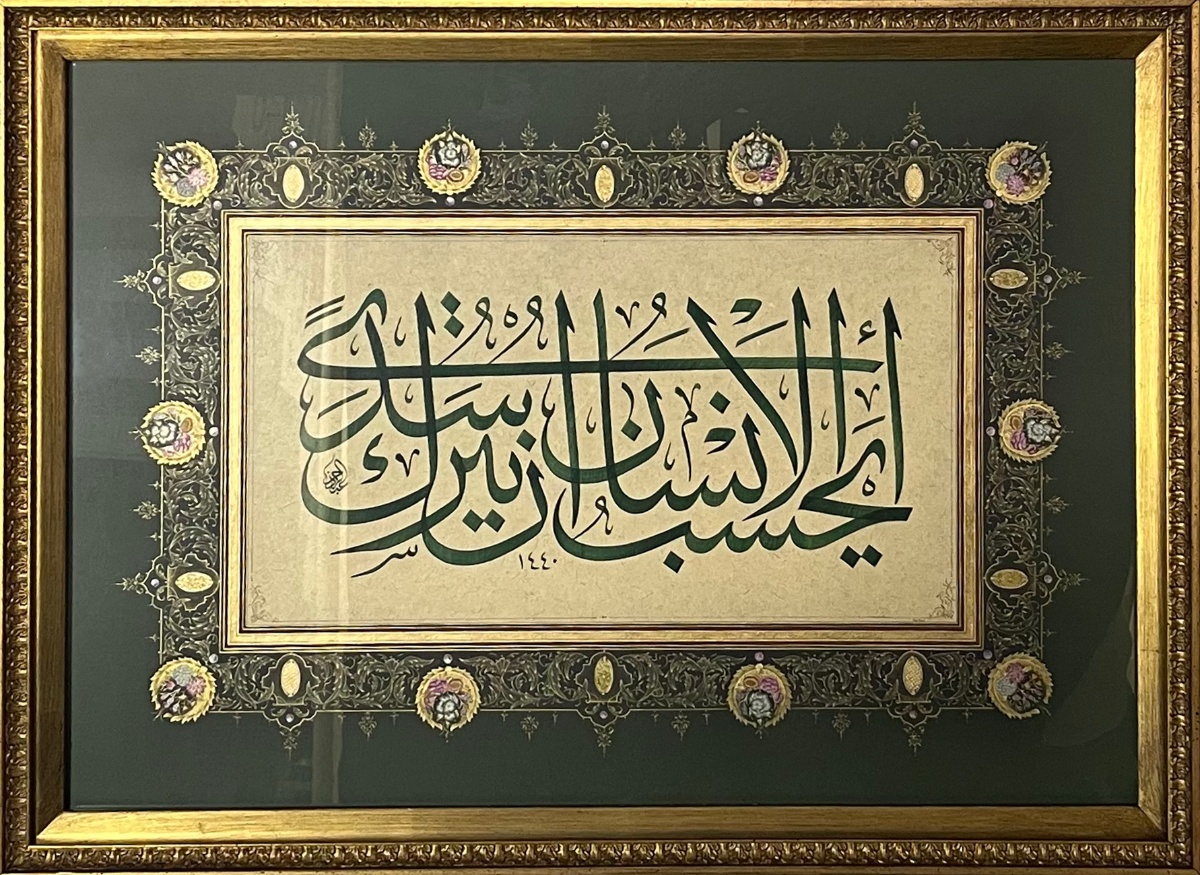 أيحسب الإنسان أن يترك سدى
١٤٤٠